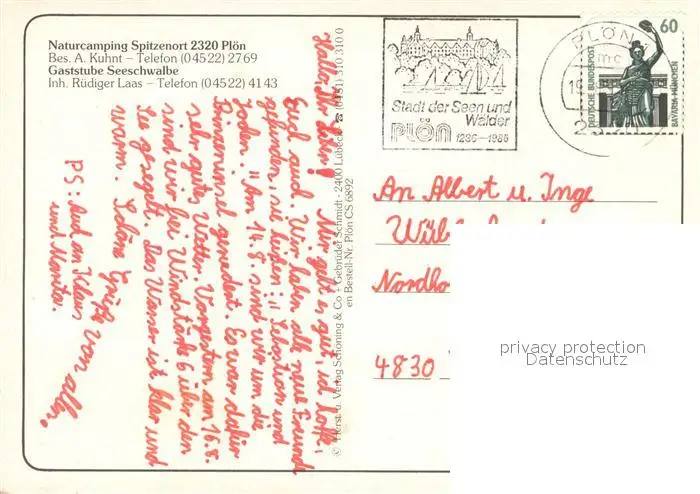 Naturcamping Spitzenort 2320 Plön
Bes. A. Kuhnt – Telefon (04522) 2769
Gaststube Seeschwalbe
Inh. Rüdiger Laas – Telefon (04522) 4143
Hallo, Ihr Lieben! Mir geht es gut, ich hoffe,
Euch auch. Wir haben alle neue Freunde
gefunden, sie heißen: Sebastian und
Am 14.8. sind wir um die
gerudert. Es war dafür
sehr gutes Wetter. Vorgestern am 16.8.
sind wir bei Windstärke 6 über den
See gesegelt. Das Wasser ist klar und
warm. Schöne Grüße von allen.
PS: Auch an Klaus
und Monika.
© Herst. u. Verlag Schöning & Co + Gebrüder Schmidt · 2400 Lübeck · ☎ (0451) 310 310.0
en Bestell-Nr. Plön CS 6892
Stadt der Seen und
Wälder
PLÖN 1236–1986
PLÖN
60
DEUTSCHE BUNDESPOST
BAVARIA MÜNCHEN
An Albert u. Inge
Nordho
4830
privacy protection
Datenschutz